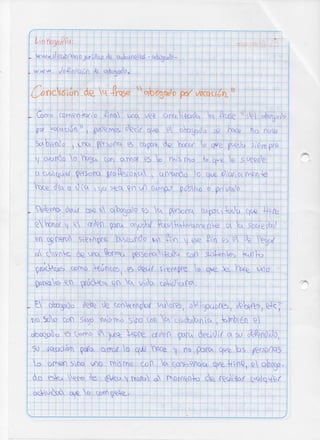 Linkografía:
- www. diccionario jurídico de cuba - abogado-
- www. definición de abogado.
Conclusión de la frase "abogado por vocación"
- Como comentario final una vez analizada la frase "del abogado
por vocación", podemos decir que el abogado se hace no nace
Sabiendo, una persona es capaz de hacer lo que quiera siempre
y cuando lo haga con amor es lo mismo lo que le sucede
a cualquier persona profesional, amando lo que diariamente
hace día a día, ya sea en un campo público o privado.
- Debemos decir que el abogado es la persona capacitada que tiene
el honor y el orden para ayudar a la sociedad
en general siempre buscando un fin y ese fin es el de llegar
al cliente de una forma personalizada con sustentos tanto
prácticos como teóricos, es decir siempre lo que se hace uno
ponerlo en práctica en la vida cotidiana.
- El abogado debe de contemplar valores, obligaciones, deberes, etc;
no solo con sigo mismo sino con la ciudadanía, también el
abogado es como el juez tiene orden para decidir a su defendido,
su vocación para amar lo que hace y no para que las personas
lo amen sino uno mismo con la consciencia que tiene, el aboga-
do esta lleno de ética y moral al momento de realizar cualquier
actividad que le compete.